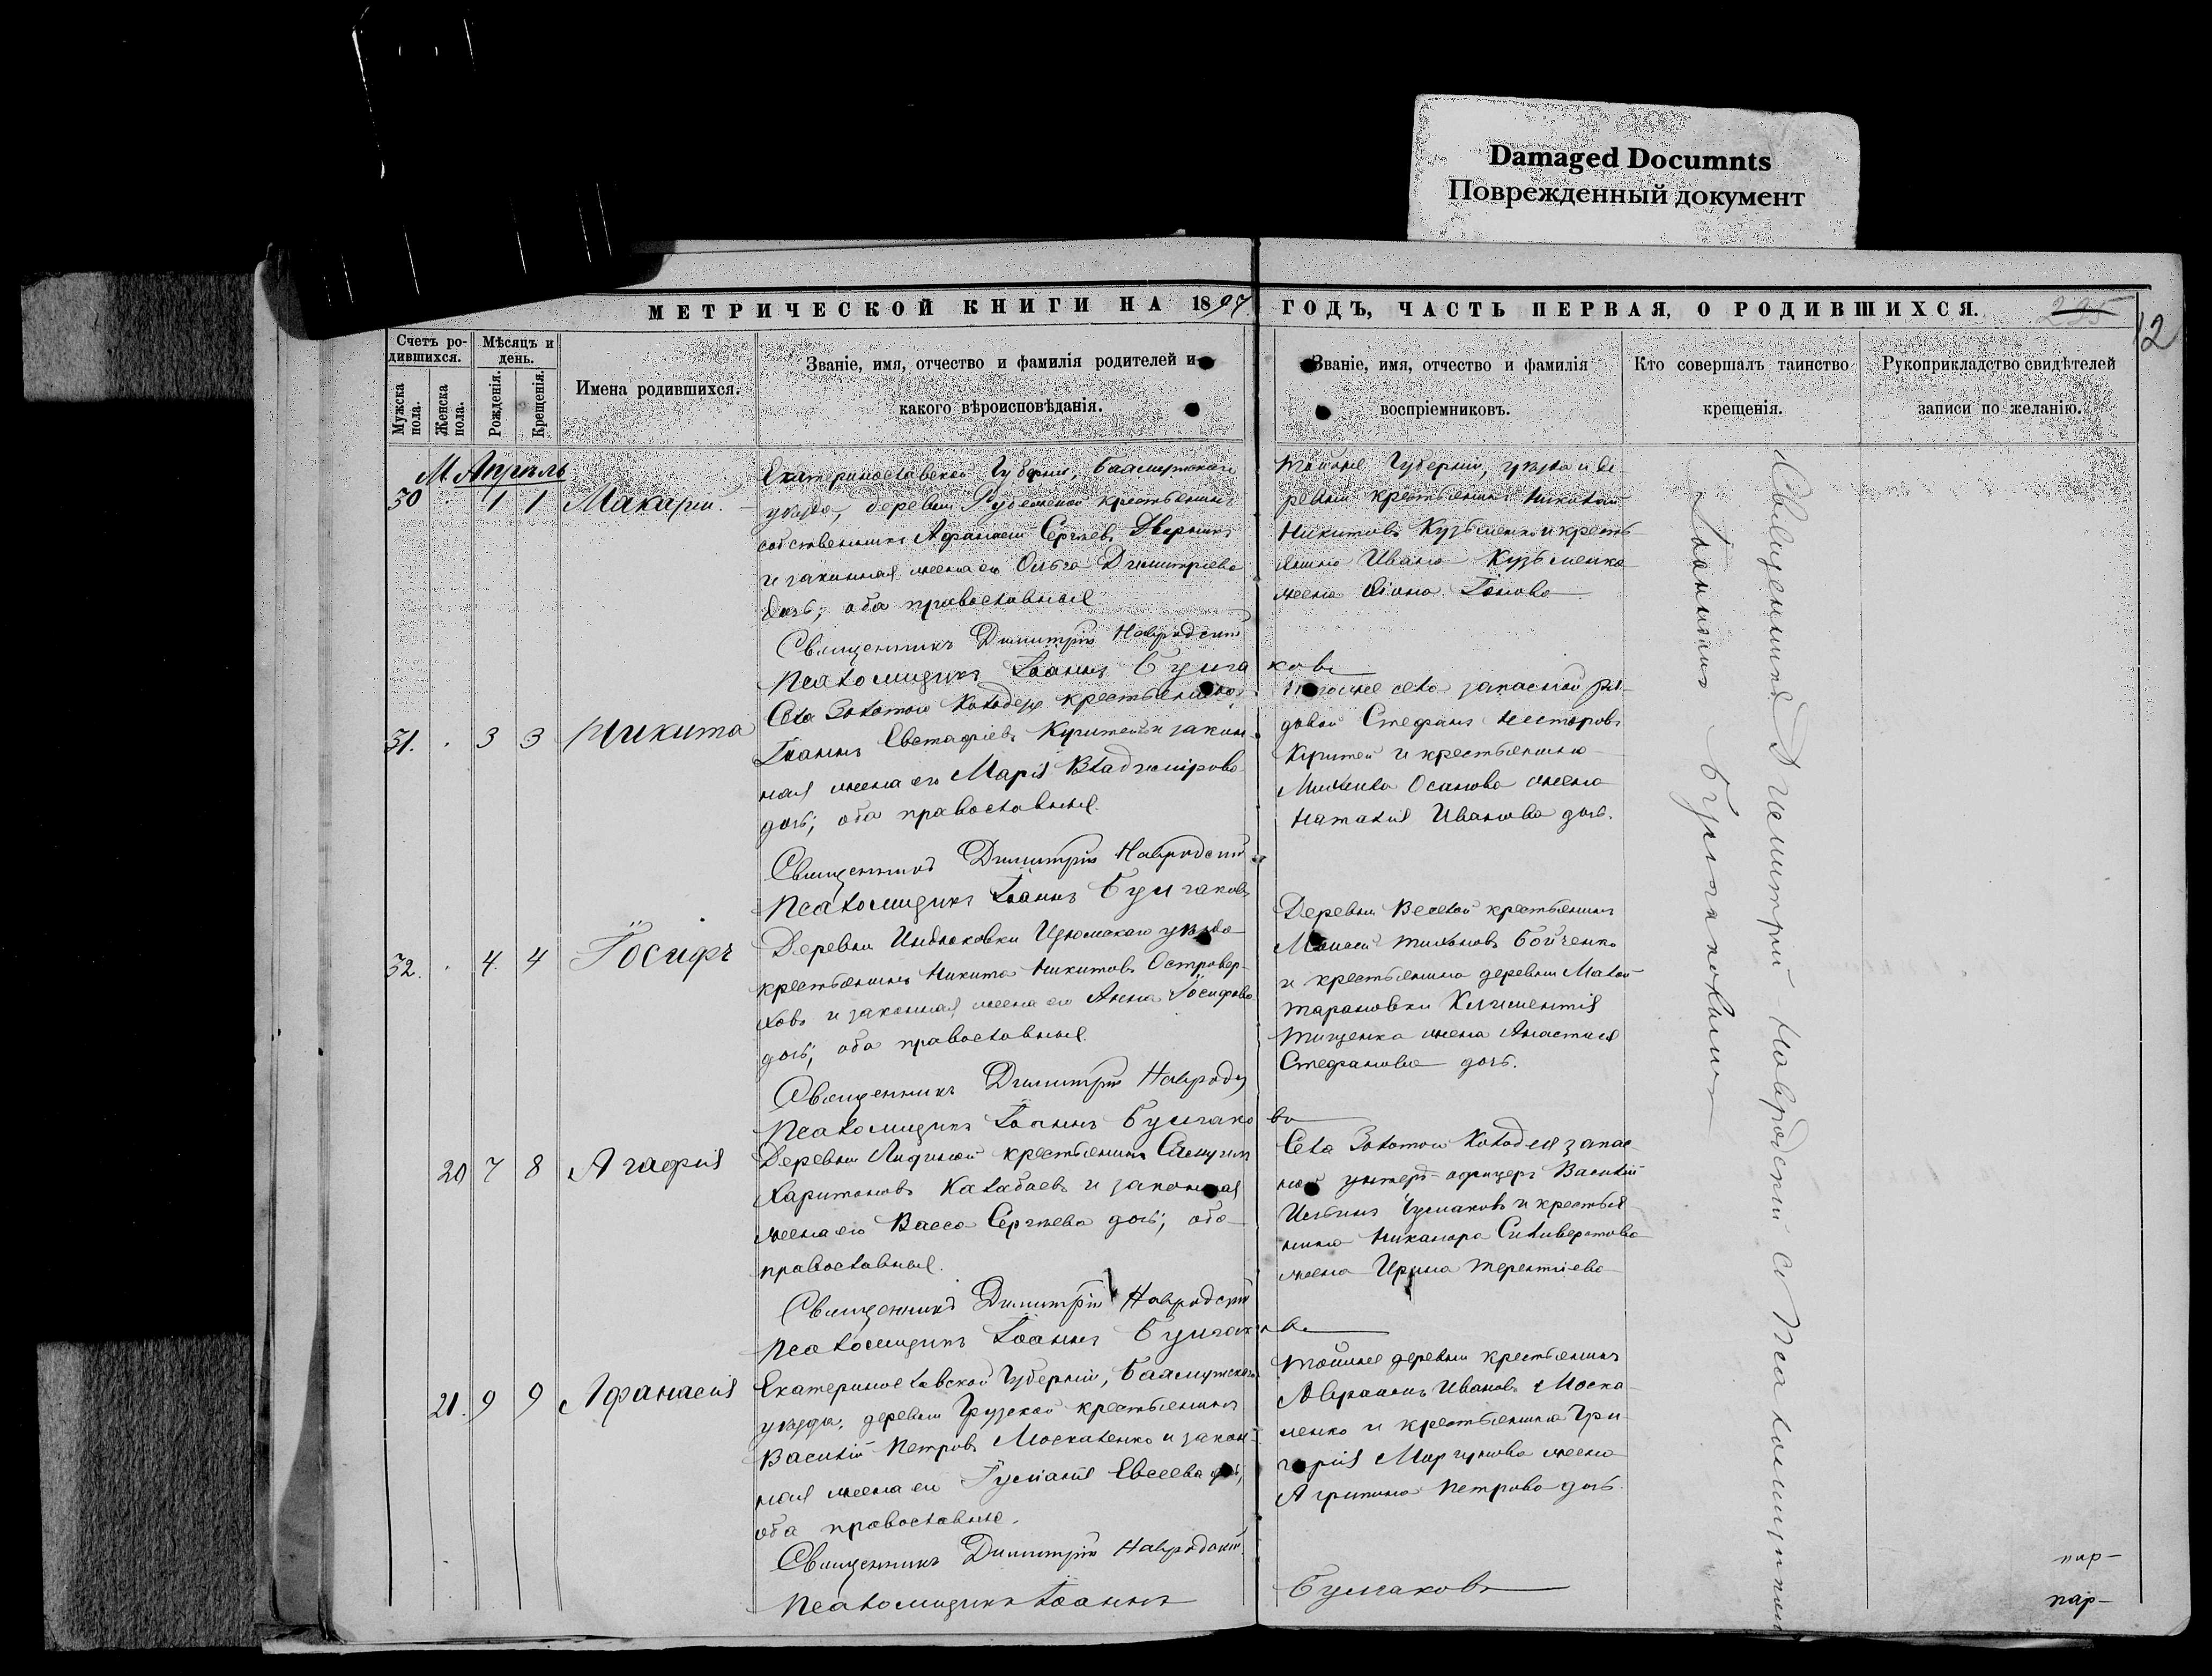 Damaged Documnts
Поврежденный документ
МЕТРИЧЕСКОЙ КНИГИ НА 1897 ГОДЪ, ЧАСТЬ ПЕРВАЯ, О РОДИВШИХСЯ.
295
12
Счетъ родившихся.
Мужска пола.
Женска пола.
Мѣсяцъ и день.
Рожденія.
Крещенія.
Имена родившихся.
Званіе, имя, отчество и фамилія родителей и какого вѣроисповѣданія.
Званіе, имя, отчество и фамилія воспріемниковъ.
Кто совершалъ таинство крещенія.
Рукоприкладство свидѣтелей записи по желанію.
М. Апрѣль
30 1 1 Макарій.
Екатеринославской Губерніи, Бахмутскаго
уѣзда, деревни крестьянинъ
собственникъ Афанасій Сергѣевъ
и законная жена его Ольга Димитріева
дочь; оба православные
Тойже Губерніи, уѣзда и де-
ревни крестьянинъ Николай
Никитовъ Кузьменко и кресть-
янина Ивана Кузьменка
жена Іонова
Священникъ Димитрій Навродскій
Псаломщикъ Іоаннъ Булгаковъ
31. 3 3 Никита
Села Золотого Колодезя крестьянинъ
Іоаннъ Евстафіевъ и закон-
ная жена его Марія Владимірова
дочь; оба православные.
Тогоже села запасной ря-
довой Стефанъ Несторовъ
и крестьянина
жена
Наталія Иванова дочь.
Священникъ Димитрій Навродскій
Псаломщикъ Іоаннъ Булгаковъ
32. 4 4 Іосифъ
Деревни Индюковки Изюмскаго уѣзда
крестьянинъ Никита Никитовъ Островер-
ховъ и законная жена его Анна Іосифова
дочь; оба православные.
Деревни Веселой крестьянинъ
Моисей Бойченко
и крестьянина деревни Малой
Тарановки Климентія
Тищенка жена Анастасія
Стефанова дочь.
Священникъ Димитрій Навродс
Псаломщикъ Іоаннъ Булгаковъ
20 7 8 Агафія
Деревни Лидиной крестьянинъ
Харитоновъ Калабаевъ и законная
жена его Васса Сергѣева дочь; оба
православные.
Села Золотого Колодезя запас-
ной унтеръ-офицеръ Василій
Ильинъ Чумаковъ и крестья-
нина Никанора Силиверстова
жена Ирина Терентіева
Священникъ Димитрій Навродскій
Псаломщикъ Іоаннъ Булгаковъ
21. 9 9 Афанасія
Екатеринославской Губерніи, Бахмутскаго
уѣзда, деревни Грузской крестьянинъ
Василій Петровъ Москаленко и закон-
ная жена его Іуліанія Евсеева дочь,
оба православные.
Тойже деревни крестьянинъ
Авраамъ Ивановъ Моска-
ленко и крестьянина Гри-
горія жена
Агрипина Петрова дочь.
Священникъ Димитрій Навродскій
Псаломщикъ Іоаннъ Булгаковъ
Священникъ Димитрій Навродскій съ Псаломщикомъ
Іоанномъ Булгаковымъ
пар-
пар-